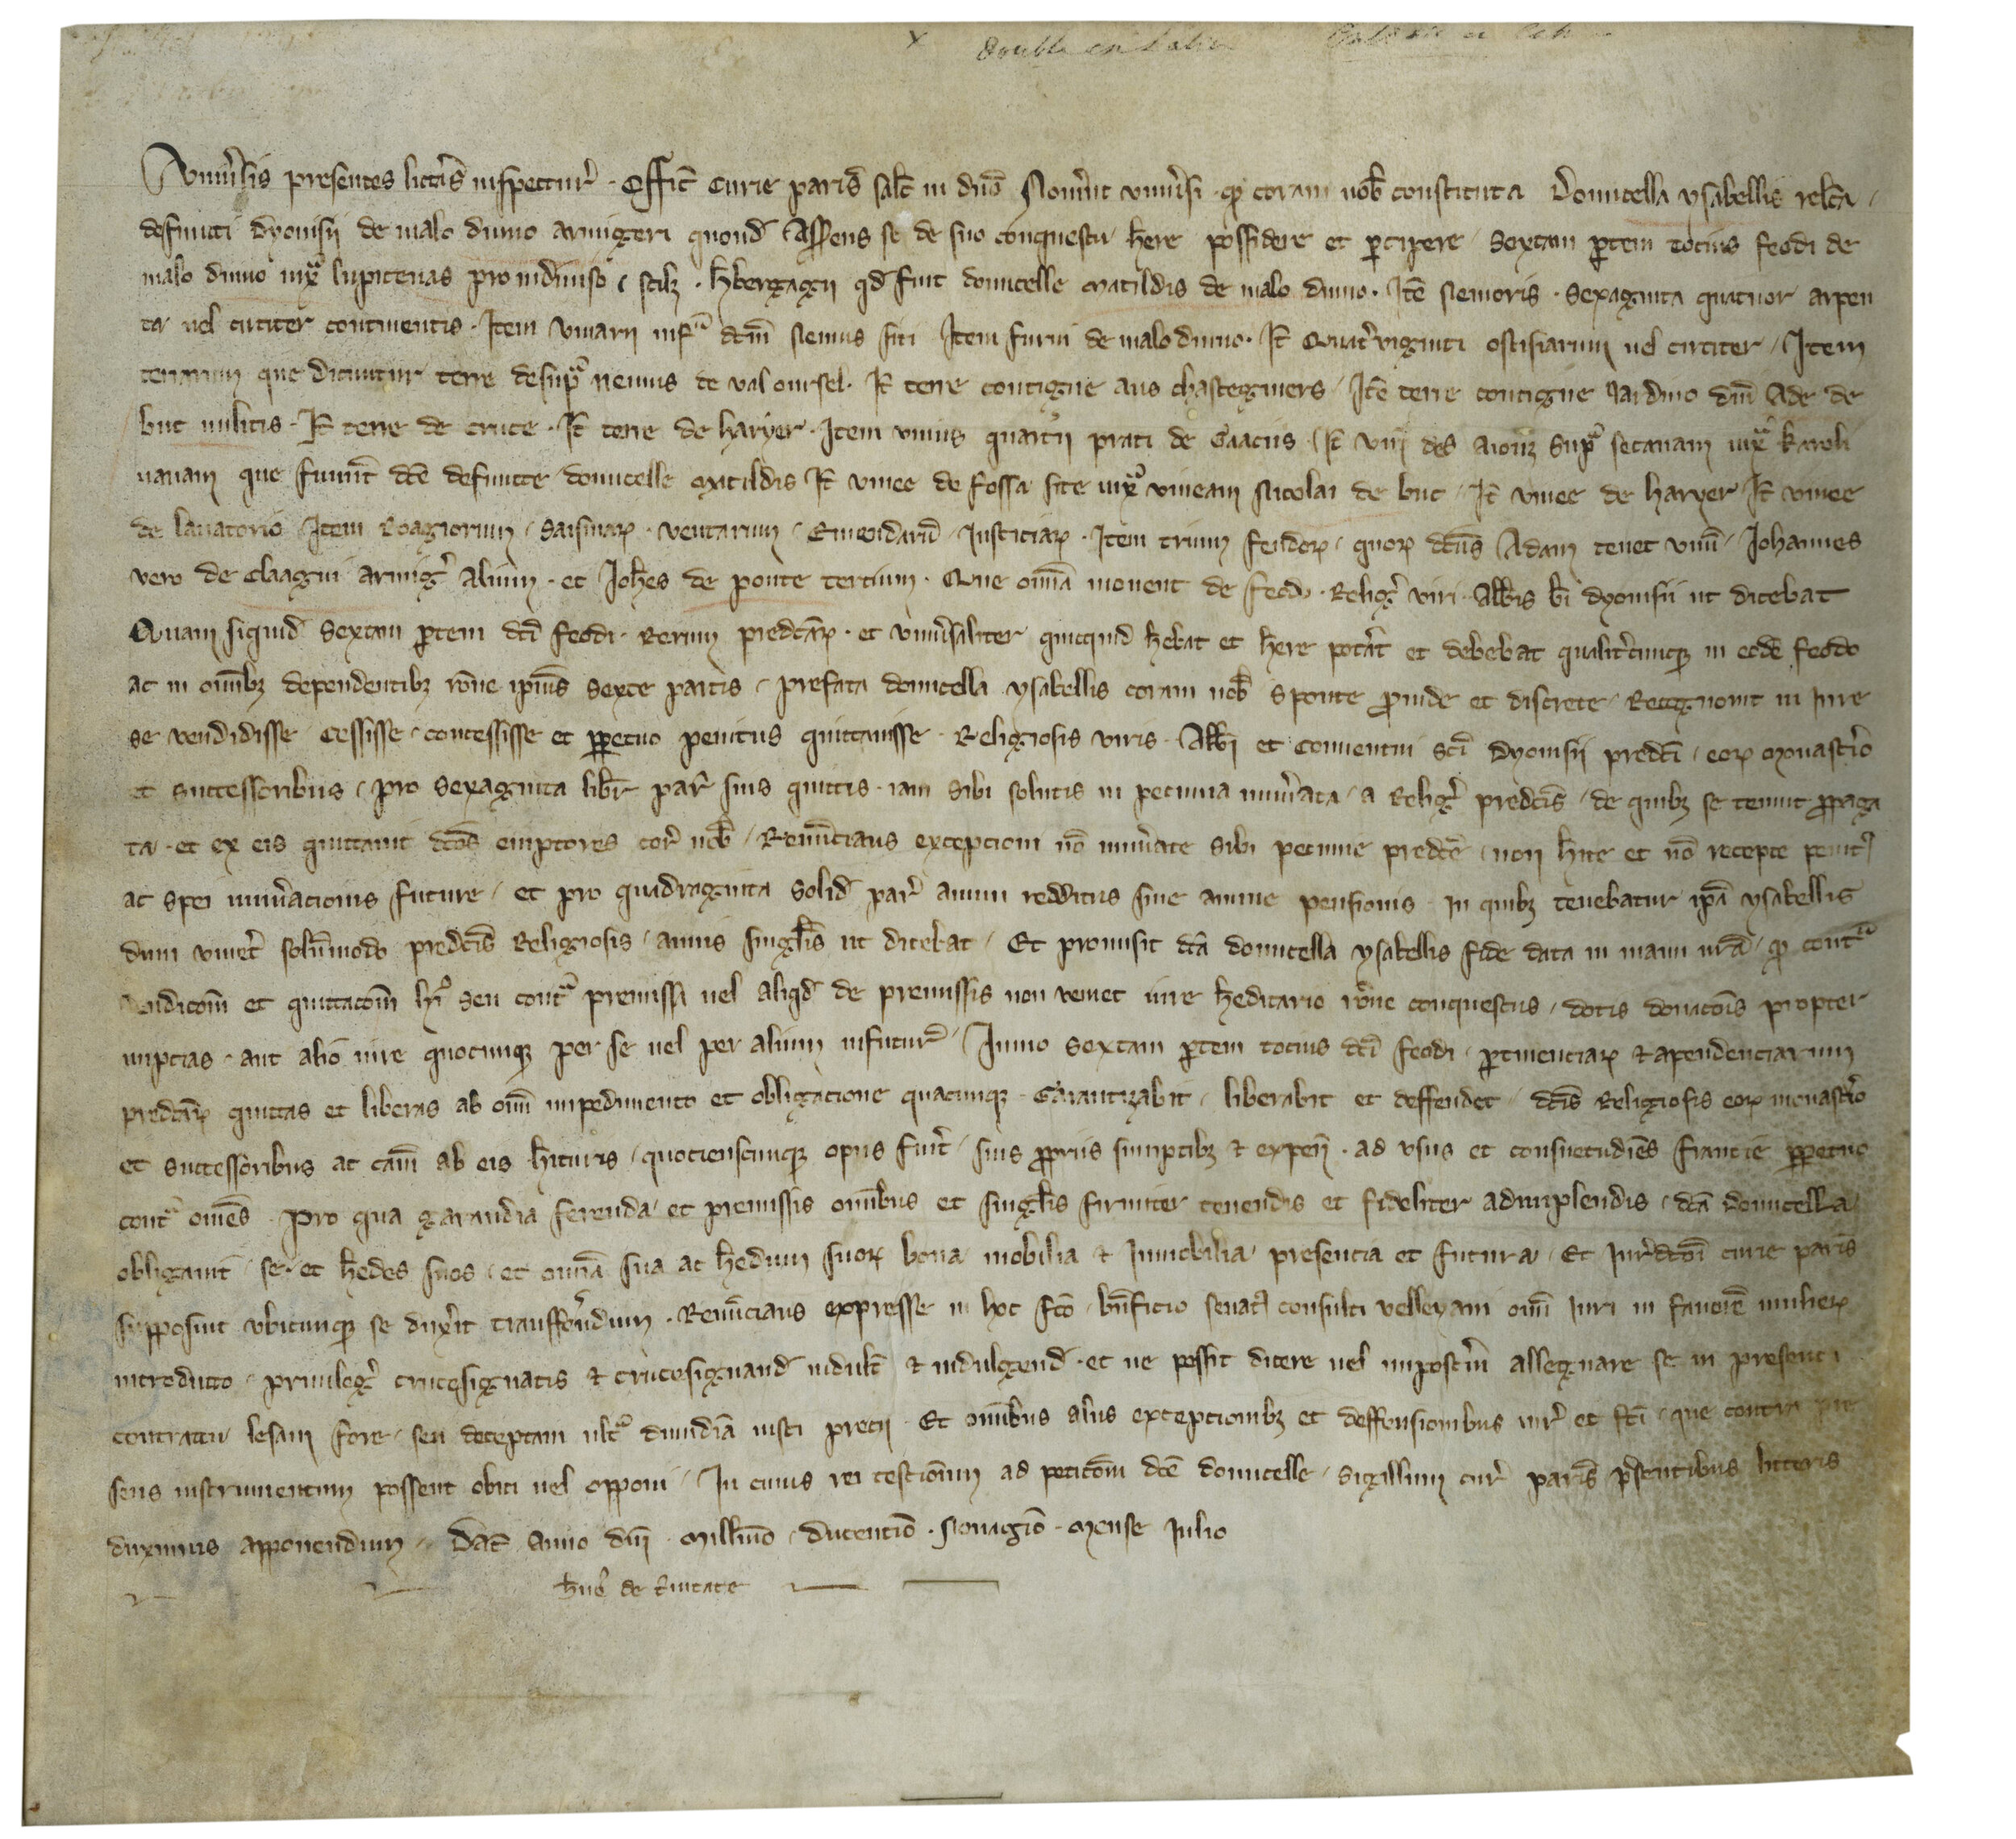 Double en Latin
Univ̾sis presentes litt̾is inspectur̾ . Offic̄ Curie parisˀ salt̄ in dn̄o Nov̾int univ̾si . qꝫ coram nob̾ constituta Domicella ysabellis relc̄a
defuncti dyonisii de malo dumo armigeri quondˀ Asserens se de suo conquestu h̄ere possidere et ꝑcipere sextam ꝑtem totius feodi de
malo dumo iuxͣ lupicenas pro indiviso scilꝫ . h̾bergagii qd̾ fuit domicelle Matildis de malo dumo . Itē Nemoris . sexaginta quatuor arpen
ta vel circiter continentis . Item vivarii infͣ dc̄m nemus siti Item furni de malo dumo . It̄ Quat̾viginti ostisiarum vel circiter Item
terrarum que dicuntur terre desupͣ nemus de val oursel . It̄ terre contigue aus chastegniers Itē terre contigue Jardino dn̄i Ade de
buc militis . It̄ terre de cruce . It̄ terre de haryer . Item unius quartii prati de Gaaciis It̄ vinee des aionz supͣ secanam iuxͣ karoli
vanam que fuer̄t dc̄e defuncte domicelle Matildis It̄ vinee de fossa site iuxͣ vineam Nicolai de buc It̄ vinee de haryer It̄ vinee
de lavatorio Item Roagiorum saisinaꝝ . ventarum Emendarū Justiciaꝝ . Item trium feudoꝝ quoꝝ dc̄us Adam tenet unū Johannes
vero de Claagni armig̾ alium . et Joh̄es de ponte tertium . Que om̄ia movent de feodo Relig̾ viri . Abb̄is bī dyonisii ut dicebat
Quam siquidˀ sextam ꝑtem dc̄i feodi . Rerum predc̄aꝝ . et univ̾saliter quicquid h̄ebat et h̄ere pot̾at et debebat qualit̾cunqꝫ in eodē feodo
ac in om̄ibꝫ dependentibꝫ rōne ip̄ius sexte partis prefata domicella ysabellis coram nob̾ sponte ꝓvide et discrete Recognovit in iure
se vendidisse Cessisse concessisse et ꝑpetuo penitus quittavisse Religiosis viris . Abb̄i et Conventui sc̄i Dyonisii predc̄i eoꝝ monast̾io
et successoribus pro sexaginta libr̾ par̾ suis quittis . iam sibi solutis in pecunia num̾ata a Relig̾ predc̄is de quibꝫ se tenuit ꝓpaga
ta . et ex eis quittavit dc̄os emptores cor̾ nob̾ Renūcians exceptioni nō num̾ate sibi pecunie predc̄e non h̄ite et nō recepte penitꝰ
ac spei num̾ationis future et pro quadraginta solidˀ par̾ annui redditus sive annue pensionis in quibꝫ tenebatur ip̄a ysabellis
dum viv̾et solūmodo predc̄is Religiosis annis singl̄is ut dicebat Et promisit dc̄a domicella ysabellis fide data in manu nr̄a qꝫ contͣ
vendicōm et quittacōm hīꝰ seu contͣ premissa vel aliqd̾ de premissis non veniet iure h̄editario rōne conquestus dotis donacōis propter
nuptias . aut aliō iure quocunqꝫ per se vel per alium infutur̾ Immo sextam ꝑtem totius dc̄i feodi ꝑtinentiaꝝ & apendenciarum
predc̄aꝝ quittas et liberas ab om̄i impedimento et obligacione quacunqꝫ . Garantizabit liberabit et deffendet dc̄is Religiosis eoꝝ monast̾io
et successoribus ac cām ab eis h̄ituris quotienscunqꝫ opus fuer̄t suis ꝓpriis sumptibꝫ & expen̄ . ad usus et consuetudīes francie ꝑpetuo
contͣ om̄es . Pro qua garandia ferenda et premissis om̄ibus et singl̄is firmiter tenendis et fideliter adimplendis dc̄a domicella
obligavit se . et h̄edes suos et om̄ia sua ac h̄edum suoꝝ bona mobilia & Immobilia presencia et futura Et Jur̾dc̄oni curie parisˀ
supposuit ubicunqꝫ se dux̾it transff̾endum . Renūcians expresse in hoc fc̄o bn̄ficio senatꝰ consulti velleyani om̄i Juri in favorē mulieꝝ
introducto privileg̾ crucesignatis & crucesignandˀ indult̄ & indulgendˀ . et ne possit dicere vel imposter̄m allegare se in presenti
contractu lesam fore seu deceptam ultͣ dimidiā iusti precii Et om̄ibus aliis exceptionibꝫ et deffensionibus iur̾ et fc̄i que contra pre
sens instrumentum possent obici vel opponi In cuius rei testionium ad peticōm dc̄e domicelle sigillum cur̾ parisˀ p̾sentibus litteris
duximus apponendum . Dat̄ anno dn̄i . Millīmo . ducentīo . Nonagīo . Mense Julio